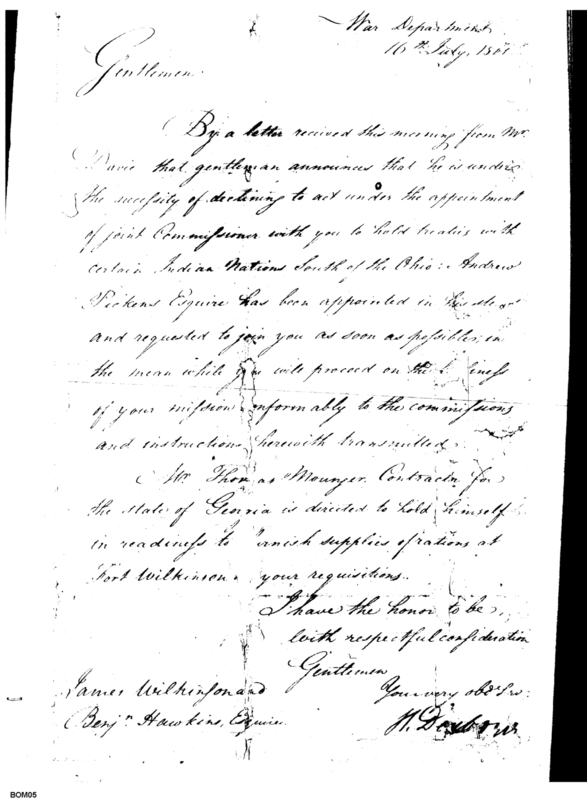 War Department
16th July, 1801
Gentlemen
By a letter received this morning from Mr.
Davie that gentleman announces that he is under
the necessity of declining to act under the appointment
of joint Commissioner with you to hold treaties with
certain Indian Nations South of the Ohio: Andrew
Pickens Esquire has been appointed in his
and requested to join you as soon as possible; in
the mean while you will proceed on the
of your mission conformably to the commissions
and instructions herewith transmitted.
Mr. Thomas Mounger Contractr. for
the state of Georgia is directed to hold himself
in readiness to furnish supplies of rations at
Fort Wilkinson your requisitions.
I have the honor to be,
with respectful consideration
Gentlemen
Your very obdt. Sr:
H. Dearborn
James Wilkinson and
Benjn. Hawkins, Esquire.
BOM05